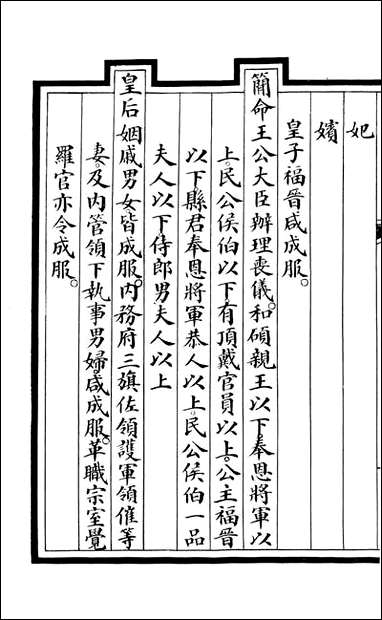 妃
嬪
皇子福晉咸成服。
簡命王公大臣辦理喪儀。和碩親王以下奉恩將軍以
上。民公侯伯以下有頂戴官員以上。公主福晉
以下縣君奉恩將軍恭人以上。民公侯伯一品
夫人以下侍郎男夫人以上
皇后姻戚男女皆成服。內務府三旗佐領護軍領催等
妻。及內管領下執事男婦。咸成服。革職宗室覺
羅官亦令成服。